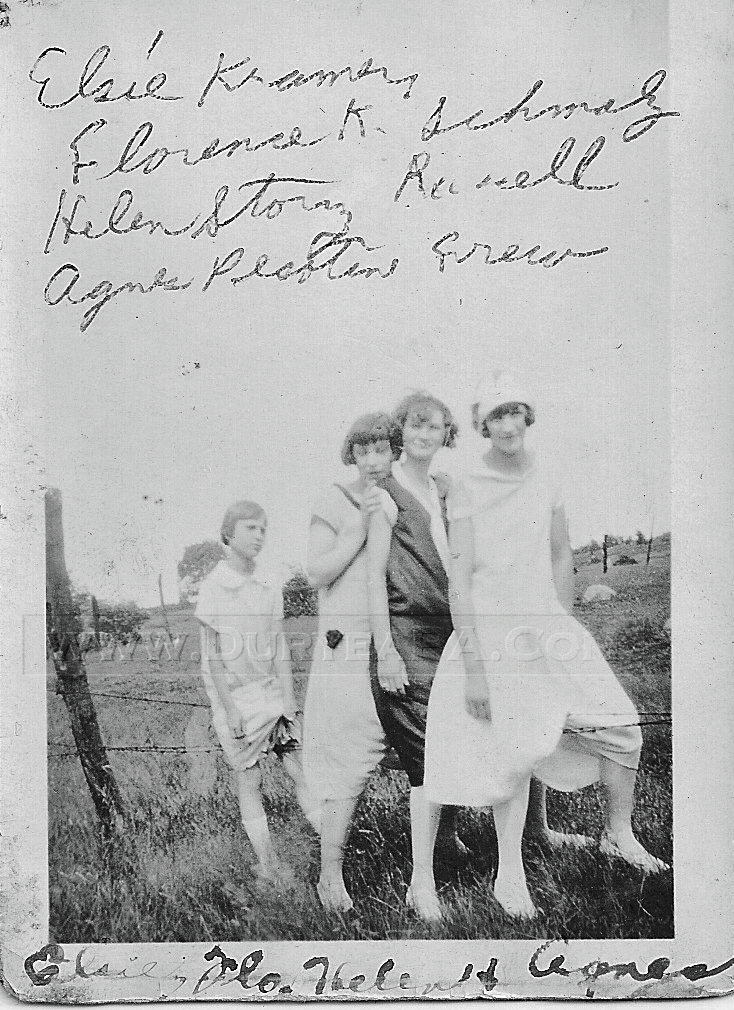 Elsie Kramer,
Florence K. Schmalz
Helen Storm Russell
Agnes Pecotin Grew
www.DurteaPa.com
Elsie, Flo. Helen H Agnes